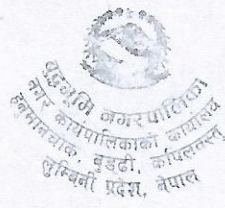 बुद्धभूमि नगरपालिका
नगर कार्यपालिकाको कार्यालय
हनुमानचोक, बुड्ढी, कपिलवस्तु
लुम्बिनी प्रदेश, नेपाल